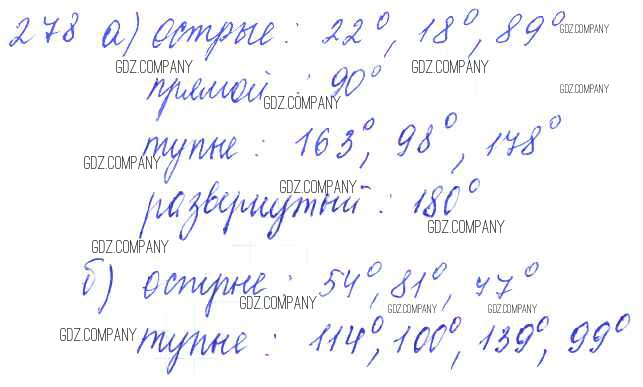 278 а) острые: 22°, 18°, 89°
GDZ.COMPANY
GDZ.COMPANY GDZ.COMPANY
GDZ.COMPANY
прямой: 90°
GDZ.COMPANY
тупые: 163°, 98°, 178°
GDZ.COMPANY
GDZ.COMPANY
развернутый: 180°
GDZ.COMPANY
GDZ.COMPANY
б) острые: 54°, 81°, 77°
GDZ.COMPANY GDZ.COMPANY GDZ.COMPANY
GDZ.COMPANY
тупые: 114°, 100°, 139°, 99°